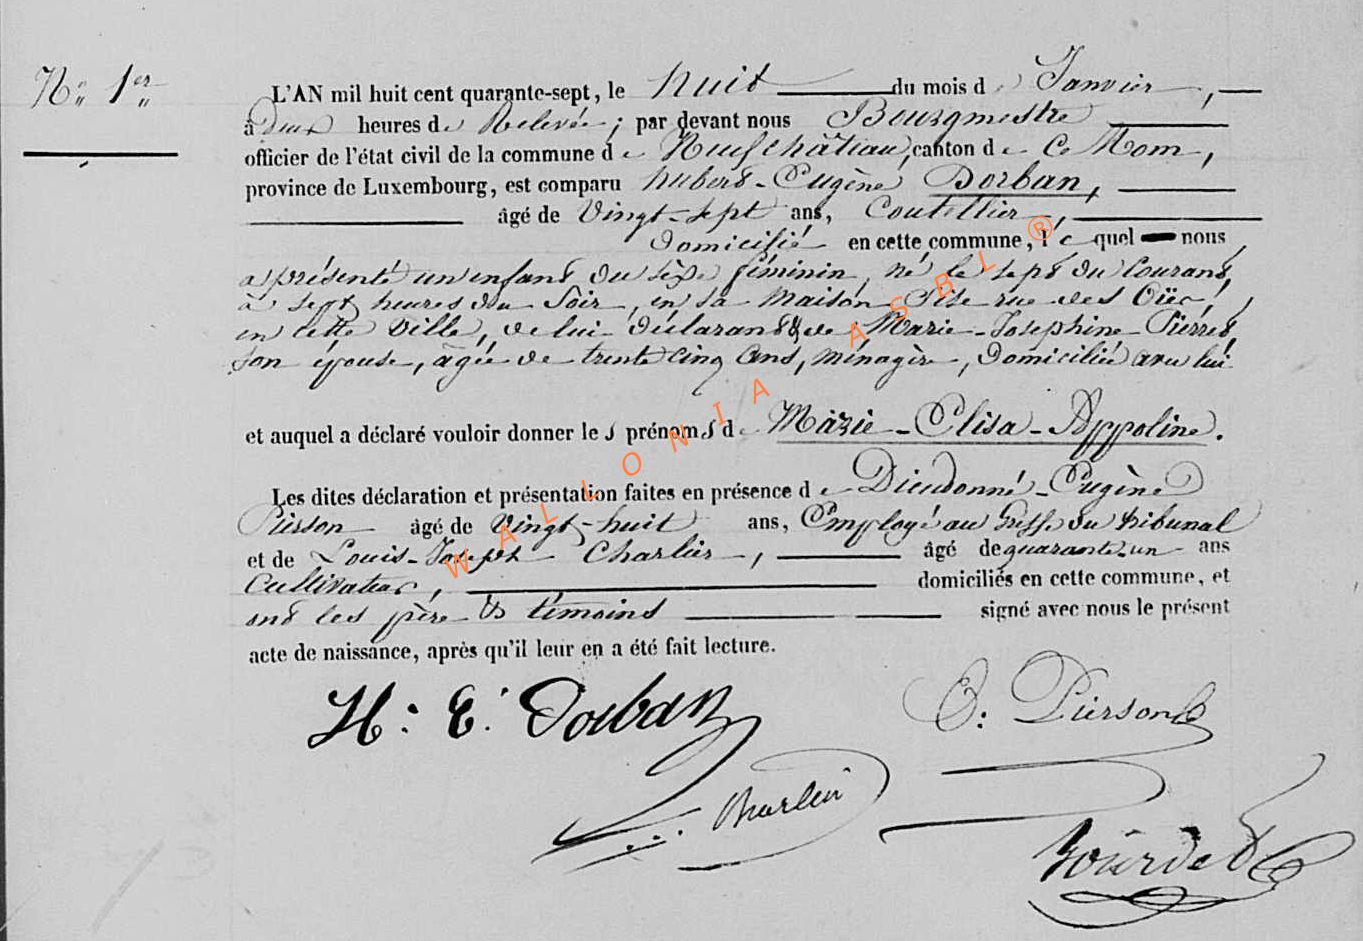 N° 1er
L'AN mil huit cent quarante-sept, le huit du mois de Janvier,
à deux heures de Relevée; par devant nous Bourgmestre
officier de l'état civil de la commune de Neufchâteau, canton de ce Nom,
province de Luxembourg, est comparu hubert-Eugène Dorban,
âgé de Vingt-sept ans, Coutellier,
Domicilié en cette commune, lequel nous
a présenté un enfant du sèxe féminin, né le sept du Courant,
à sept heures du Soir, en sa maison Sise rue des
en cette Ville, de lui déclarant & de Marie-Josephine Pierret
son épouse, âgée de trente cinq ans, ménagère, Domiciliée avec lui
et auquel a déclaré vouloir donner les prénoms de Marie-Elisa-Appoline.
Les dites déclaration et présentation faites en présence de Dieudonné-Eugène
Pierson âgé de Vingt-huit ans, Employé au Greffe du tribunal
et de Louis-Joseph Charlier, âgé de quarante un ans
Cultivateur, domiciliés en cette commune, et
ont les père & témoins signé avec nous le présent
acte de naissance, après qu'il leur en a été fait lecture.
H: E: Dorban
E: Pierson
L: Charlier
WALLONIA ASBL ®